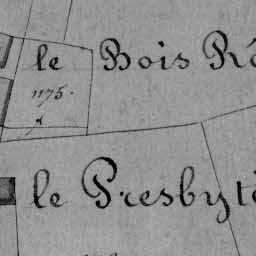 le Bois R
1175.
le Presbytè